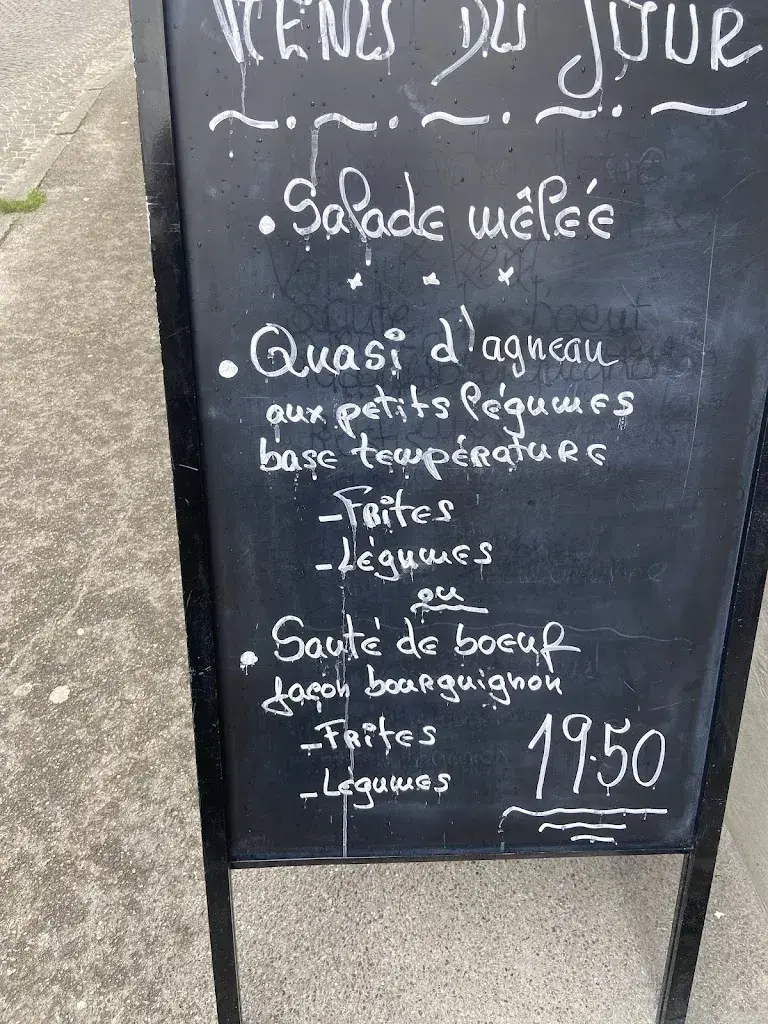 MENU DU JOUR
• Salade mêlée
• Quasi d'agneau
aux petits légumes
base température
- Frites
- Légumes
ou
• Sauté de boeuf
façon bourguignon
- Frites
- Légumes
19.50